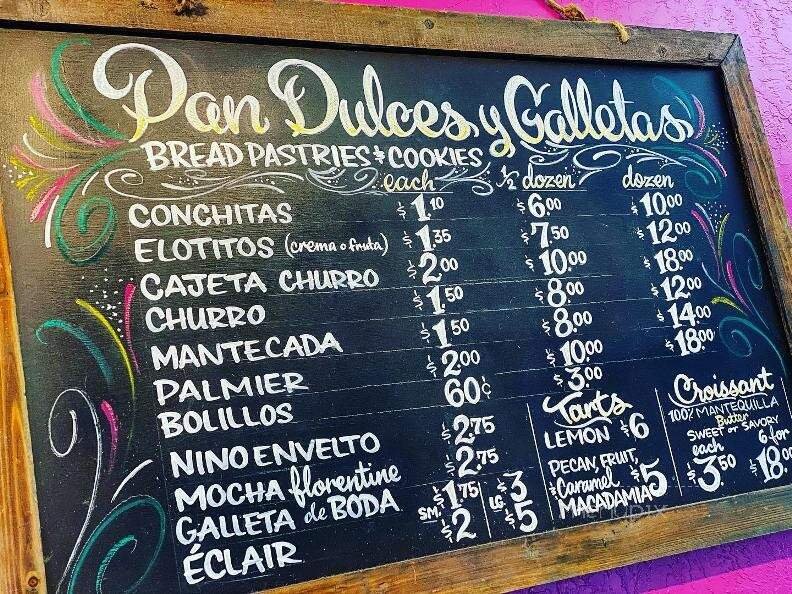 Pan Dulces y Galletas
BREAD PASTRIES & COOKIES
each ½ dozen dozen
CONCHITAS $1.10 $6.00 $10.00
ELOTITOS (crema o fruta) $1.35 $7.50 $12.00
CAJETA CHURRO $2.00 $10.00 $18.00
CHURRO $1.50 $8.00 $12.00
MANTECADA $1.50 $8.00 $14.00
PALMIER $2.00 $10.00 $18.00
BOLILLOS 60¢ $3.00
NINO ENVELTO $2.75
MOCHA florentine $2.75
GALLETA de BODA $1.75 $3
ÉCLAIR SM. $2 LG. $5
Tarts
LEMON $6
PECAN, FRUIT,
Caramel $5
MACADAMIA
Croissant
100% MANTEQUILLA
Butter
SWEET or SAVORY
each 6 for
$3.50 $18.00